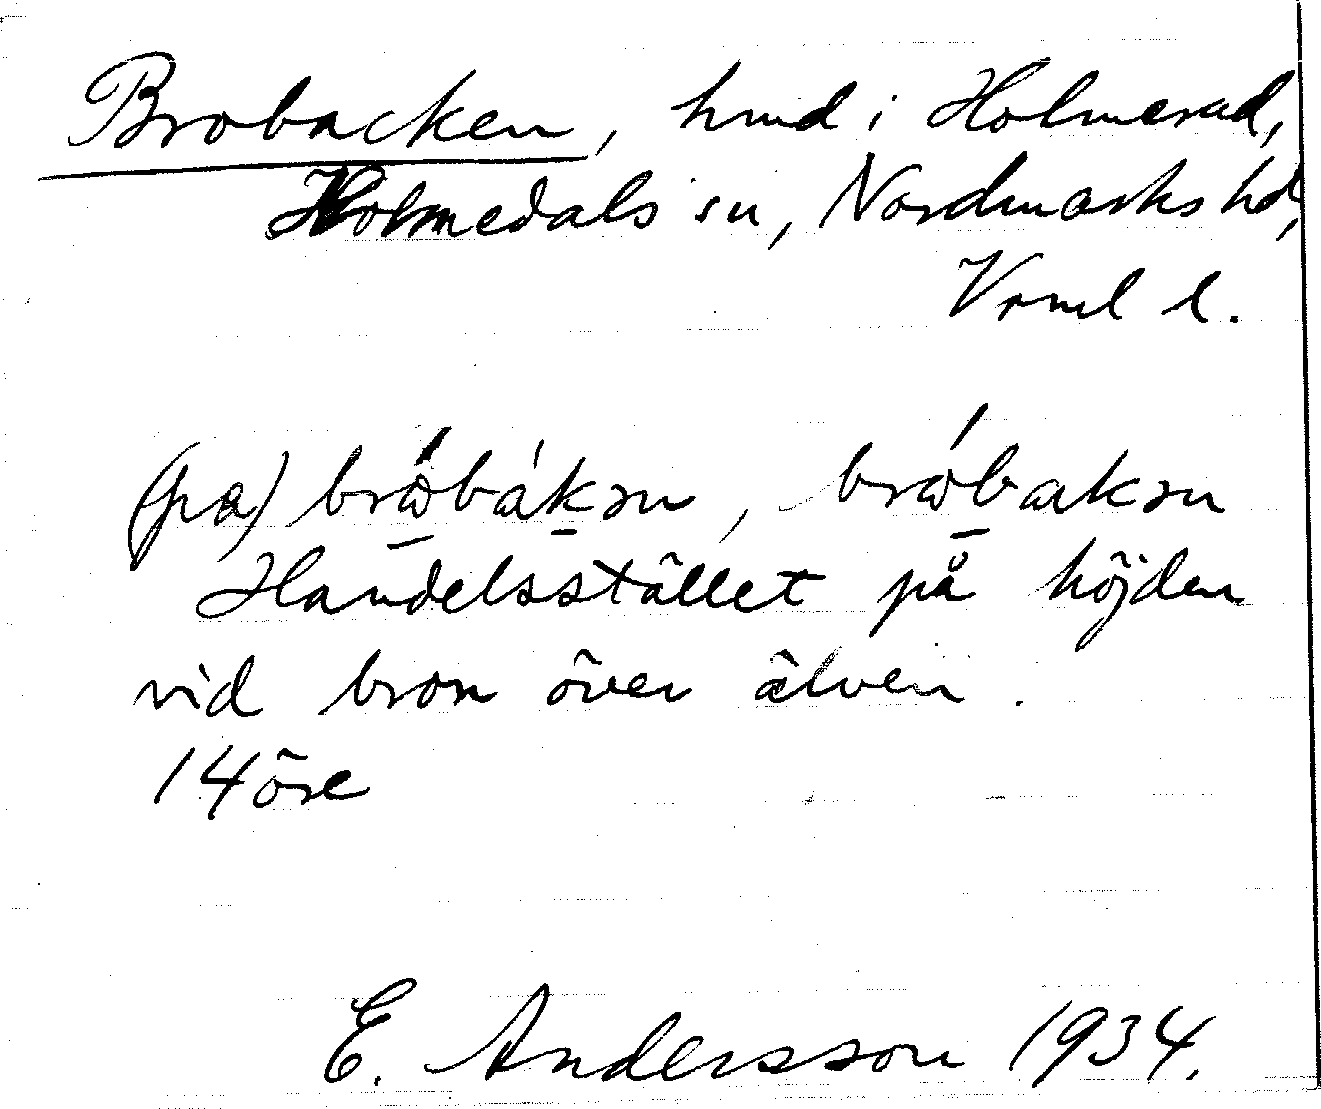 Brobacken, hmd i Holmerud,
Holmedals sn, Nordmarks hd,
Vrml l.
(pa) brωbákən, brωbakən
Handelsstället på höjden
vid bron över älven.
14 öre
E. Andersson 1934.